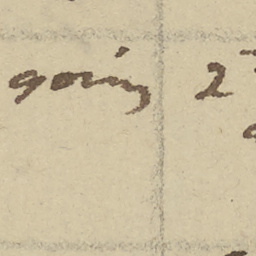 going 2